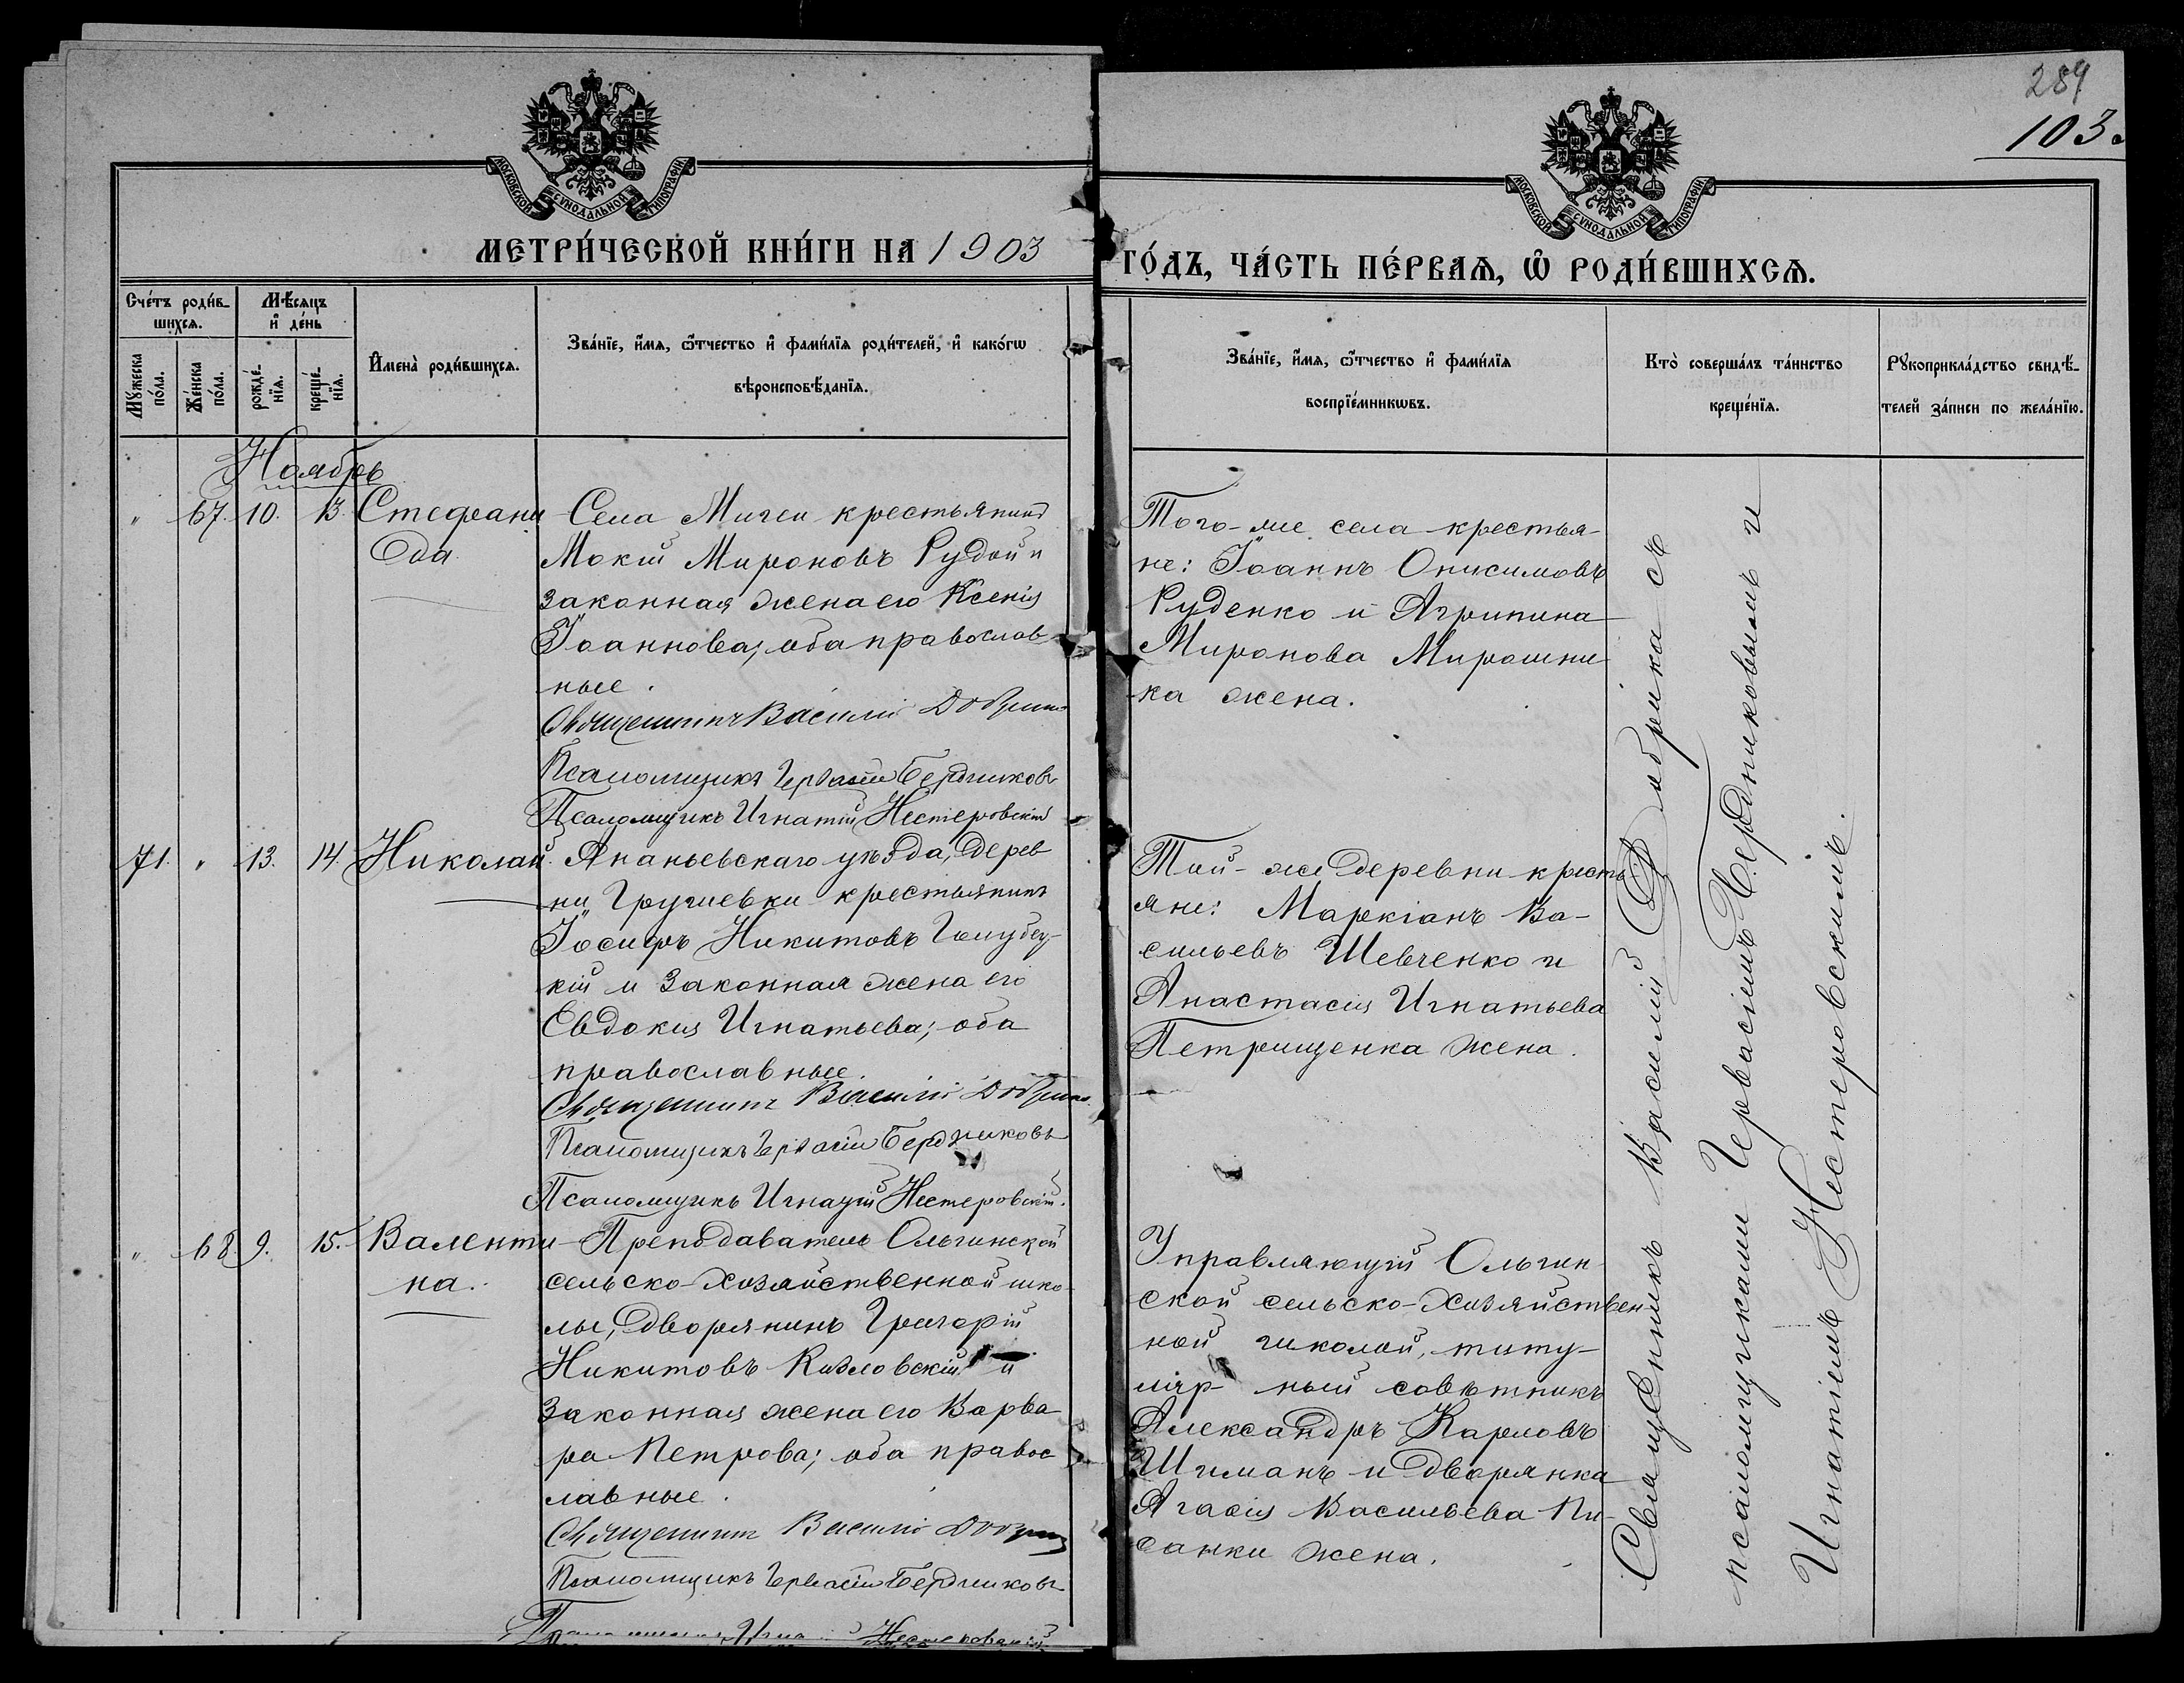 289
103.
МОСКОВСКОЙ СѴНОДАЛЬНОЙ ТИПОГРАФІИ
МОСКОВСКОЙ СѴНОДАЛЬНОЙ ТИПОГРАФІИ
МЕТРИ́ЧЕСКОЙ КНИ́ГИ НА 1903
ГО́ДЪ, ЧА́СТЬ ПЕ́РВАЯ, Ѽ РОДИ́ВШИХСЯ.
Сче́тъ роди́в-
шихся.
Мѣ́сяцъ
и҆ де́нь
Мꙋ́жеска по́ла.
Же́нска по́ла.
рожде́-
нїя.
креще́-
нїя.
И҆мена̀ роди́вшихся.
Зва́нїе, и҆́мя, ѻ҆́тчество и҆ фами́лїя роди́телей, и҆ како́гѡ
вѣроисповѣ́данїя.
Зва́нїе, и҆́мя, ѻ҆́тчество и҆ фами́лїя
воспрїе́мникѡвъ.
Кто̀ соверша́лъ та́инство
креще́нїя.
Рꙋкоприкла́дство свидѣ́-
телей за́писи по жела́нїю.
Ноябрь
" 67. 10. 13. Стефани
да
Села Мигеи крестьянинъ
Мокій Мироновъ Рудой и
законная жена его Ксенія
Іоаннова; оба православ-
ные.
Священникъ Василій Добрика
Псаломщикъ Гервасій Бердниковъ
Псаломщикъ Игнатій Нестеровскій
Того-же села крестья-
не: Іоаннъ Онисимовъ
Руденко и Агрипина
Миронова Мирошни-
ка жена.
71. " 13. 14. Николай.
Ананьевскаго уѣзда, дерев
ни Грушевки крестьянинъ
Іосифъ Никитовъ Голубец-
кій и законная жена его
Евдокія Игнатьева; оба
православные.
Священникъ Василій Добрика
Псаломщикъ Гервасій Бердниковъ
Псаломщикъ Игнатій Нестеровскій.
Той-же деревни кресть
яне: Маркіанъ Ва-
сильевъ Шевченко и
Анастасія Игнатьева
Петрищенка жена.
" 68. 9. 15. Валенти-
на.
Преподаватель Ольгинской
сельско-хозяйственной шко-
лы, дворянинъ Григорій
Никитовъ Козловскій и
законная жена его Варва
ра Петрова; оба правос
лавные.
Священникъ Василій Добрика
Псаломщикъ Гервасій Бердниковъ
Псаломщикъ Игнатій Нестеровскій
Управляющій Ольгин-
ской сельско-хозяйствен-
ной школой, титу-
ляр-ный совѣтникъ
Александръ Карловъ
и дворянка
Агасія Васильева Пи-
санки жена.
Священникъ Василій Добрика съ
псаломщиками Гервасіемъ Бердниковымъ и
Игнатіемъ Нестеровскимъ.